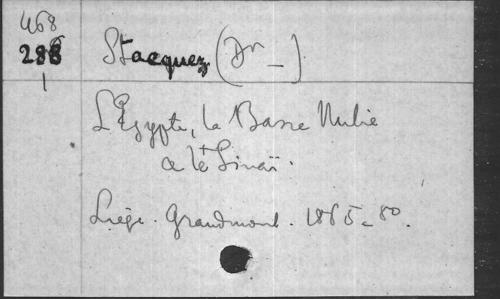 468
286
1
Stacquez (Dr _).
L'Egypte, la Basse Nubie
et le Sinaï.
Liège. Grandmont. 1865 _ 8º.